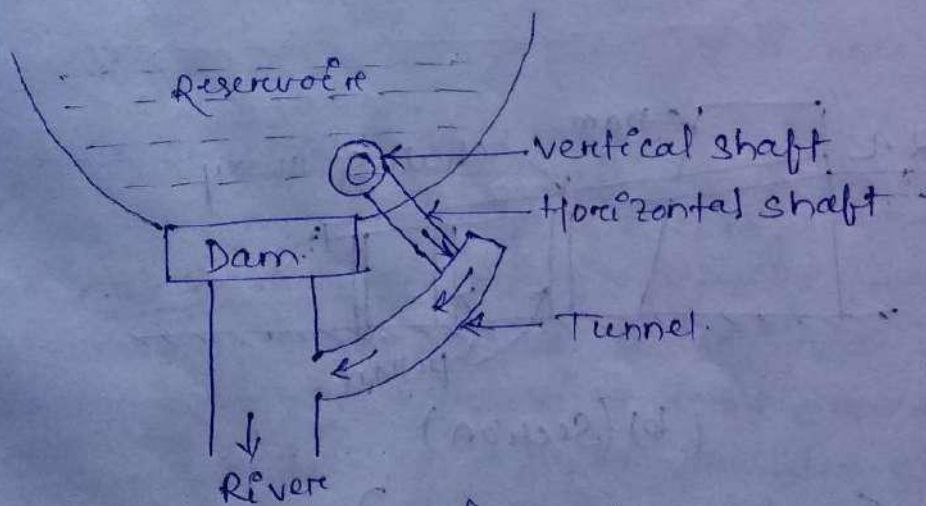 Reservoire
vertical shaft
Horizontal shaft
Dam.
Tunnel.
(Section)
Rivere